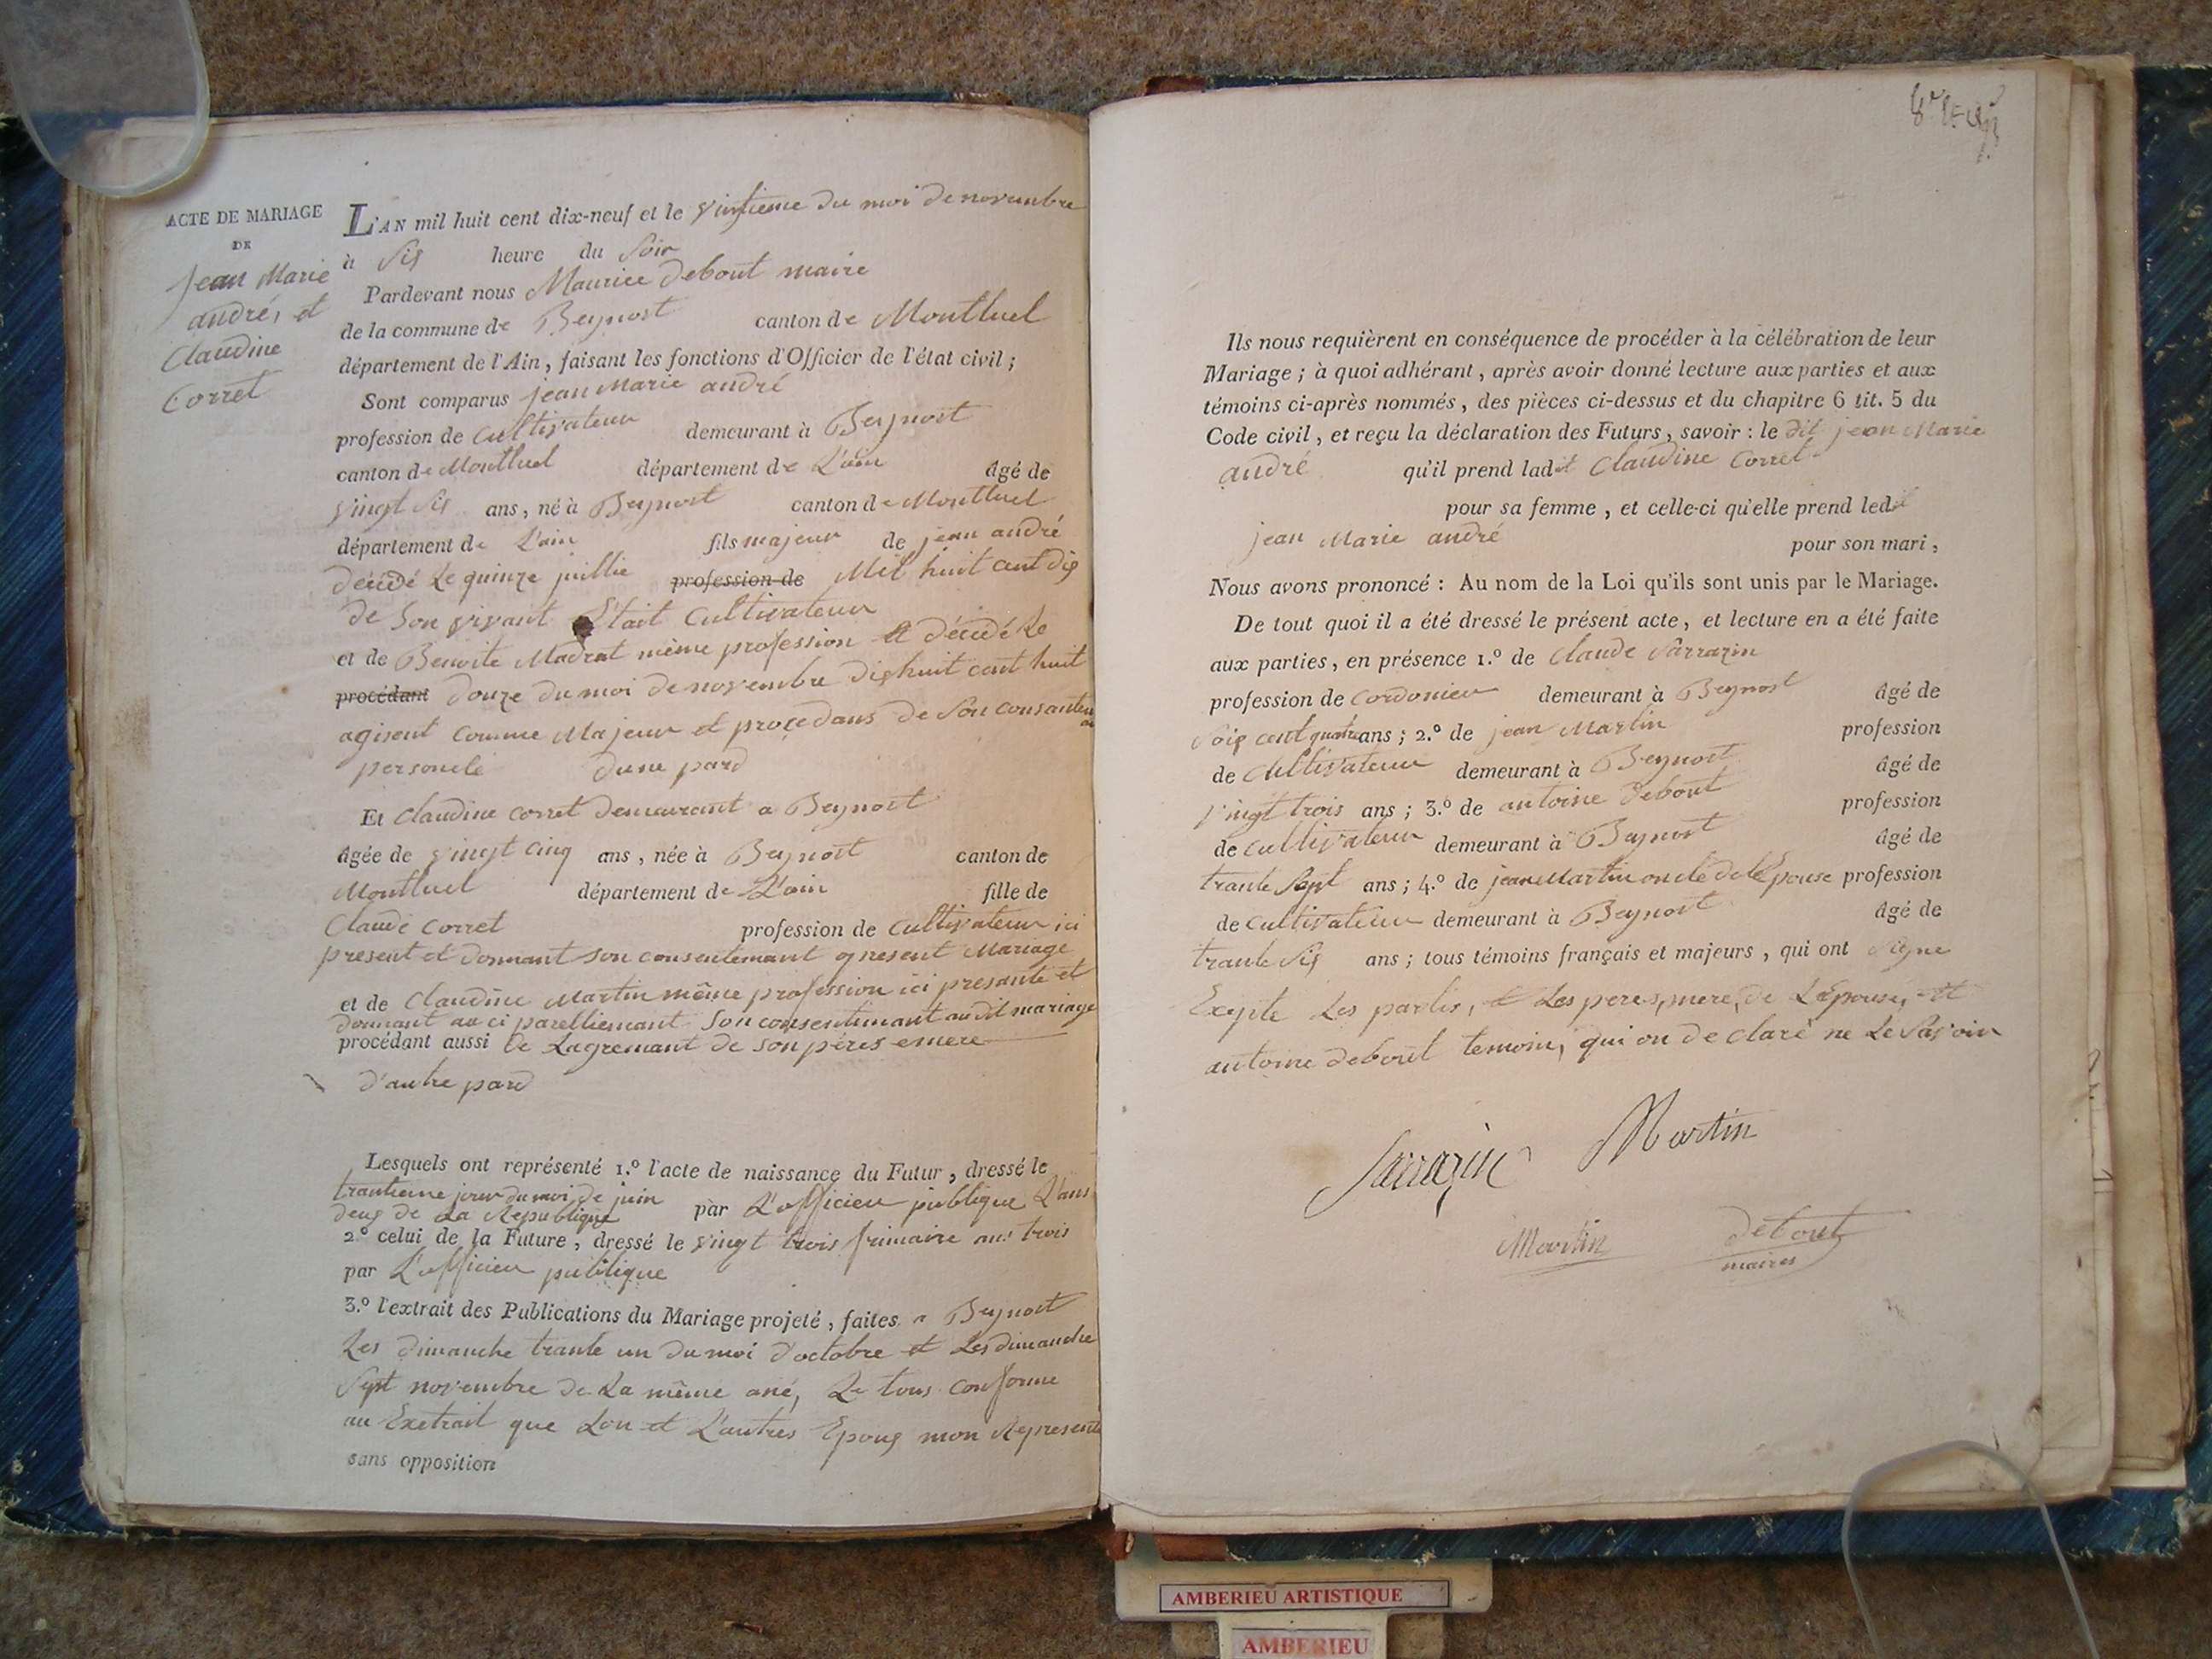 ACTE DE MARIAGE
DE
Jean Marie
andré, et
Claudine
Corret
L'AN mil huit cent dix-neuf et le vintieme du moi de novembre
à six heure du soir
Pardevant nous Maurice debout maire
de la commune de Beynost canton de Montluel
département de l'Ain, faisant les fonctions d'Officier de l'état civil;
Sont comparus jean Marie andré
profession de cultivateur demeurant à Beynost
canton de Montluel département de L'ain âgé de
vingt six ans, né à Beynost canton de Montluel
département de L'ain fils majeur de jean andré
décédé Le quinze juillie profession de Mil huit cent dix
de son vivant Etait cultivateur
et de Benoite Madrat même profession et décédé Le
procédant douze du moi de novembre dixhuit cent huit
agisent comme Majeur et procedans de son consantem
personele dune pard
Et Claudine corret demeurant a Beynost
âgée de vingt cinq ans, née à Beynost canton de
Montluel département de L'ain fille de
Claude corret profession de cultivateur ici
present et donnant son consentemant present Mariage
et de Claudine Martin même profession ici presante et
donnant au ci parelliemant son consentimant au dit mariage
procédant aussi de Lagremant de son péres emere
d'autre pard
Lesquels ont représenté 1.º l'acte de naissance du Futur, dressé le
trantieme jour du moi de juin par L'officier publique L'ans
deux de La Republique
2º celui de la Future, dressé le vingt trois frimaire ans trois
par L'officier publique
3.º l'extrait des Publications du Mariage projeté, faites a Beynost
Les dimanche trante un du moi d'octobre et Les dimanche
Sept novembre de La même ané, Le tous conforme
au Exetrait que Lon et L'autres Epoux mon Represente
sans opposition
Ils nous requièrent en conséquence de procéder à la célébration de leur
Mariage; à quoi adhérant, après avoir donné lecture aux parties et aux
témoins ci-après nommés, des pièces ci-dessus et du chapitre 6 tit. 5 du
Code civil, et reçu la déclaration des Futurs, savoir: le dit jean Marie
andré qu'il prend ladit Claudine Corret
pour sa femme, et celle-ci qu'elle prend ledit
jean Marie andré pour son mari,
Nous avons prononcé: Au nom de la Loi qu'ils sont unis par le Mariage.
De tout quoi il a été dressé le présent acte, et lecture en a été faite
aux parties, en présence 1.º de Claude Sarrazin
profession de cordonier demeurant à Beynost âgé de
soix cent quatre ans; 2.º de jean Martin profession
de cultivateur demeurant à Beynost âgé de
vingt trois ans; 3.º de antoine debout profession
de cultivateur demeurant à Beynost âgé de
trante sept ans; 4.º de jean Martin oncle de lépouse profession
de cultivateur demeurant à Beynost âgé de
trante six ans; tous témoins français et majeurs, qui ont signe
Exepte Les partis, Les peres, mere, de Lépouse, et
antoine debout temoin, qui on declaré ne Le savoir
Sarrazin Martin
Martin debout
maires
AMBERIEU ARTISTIQUE
AMBERIEU